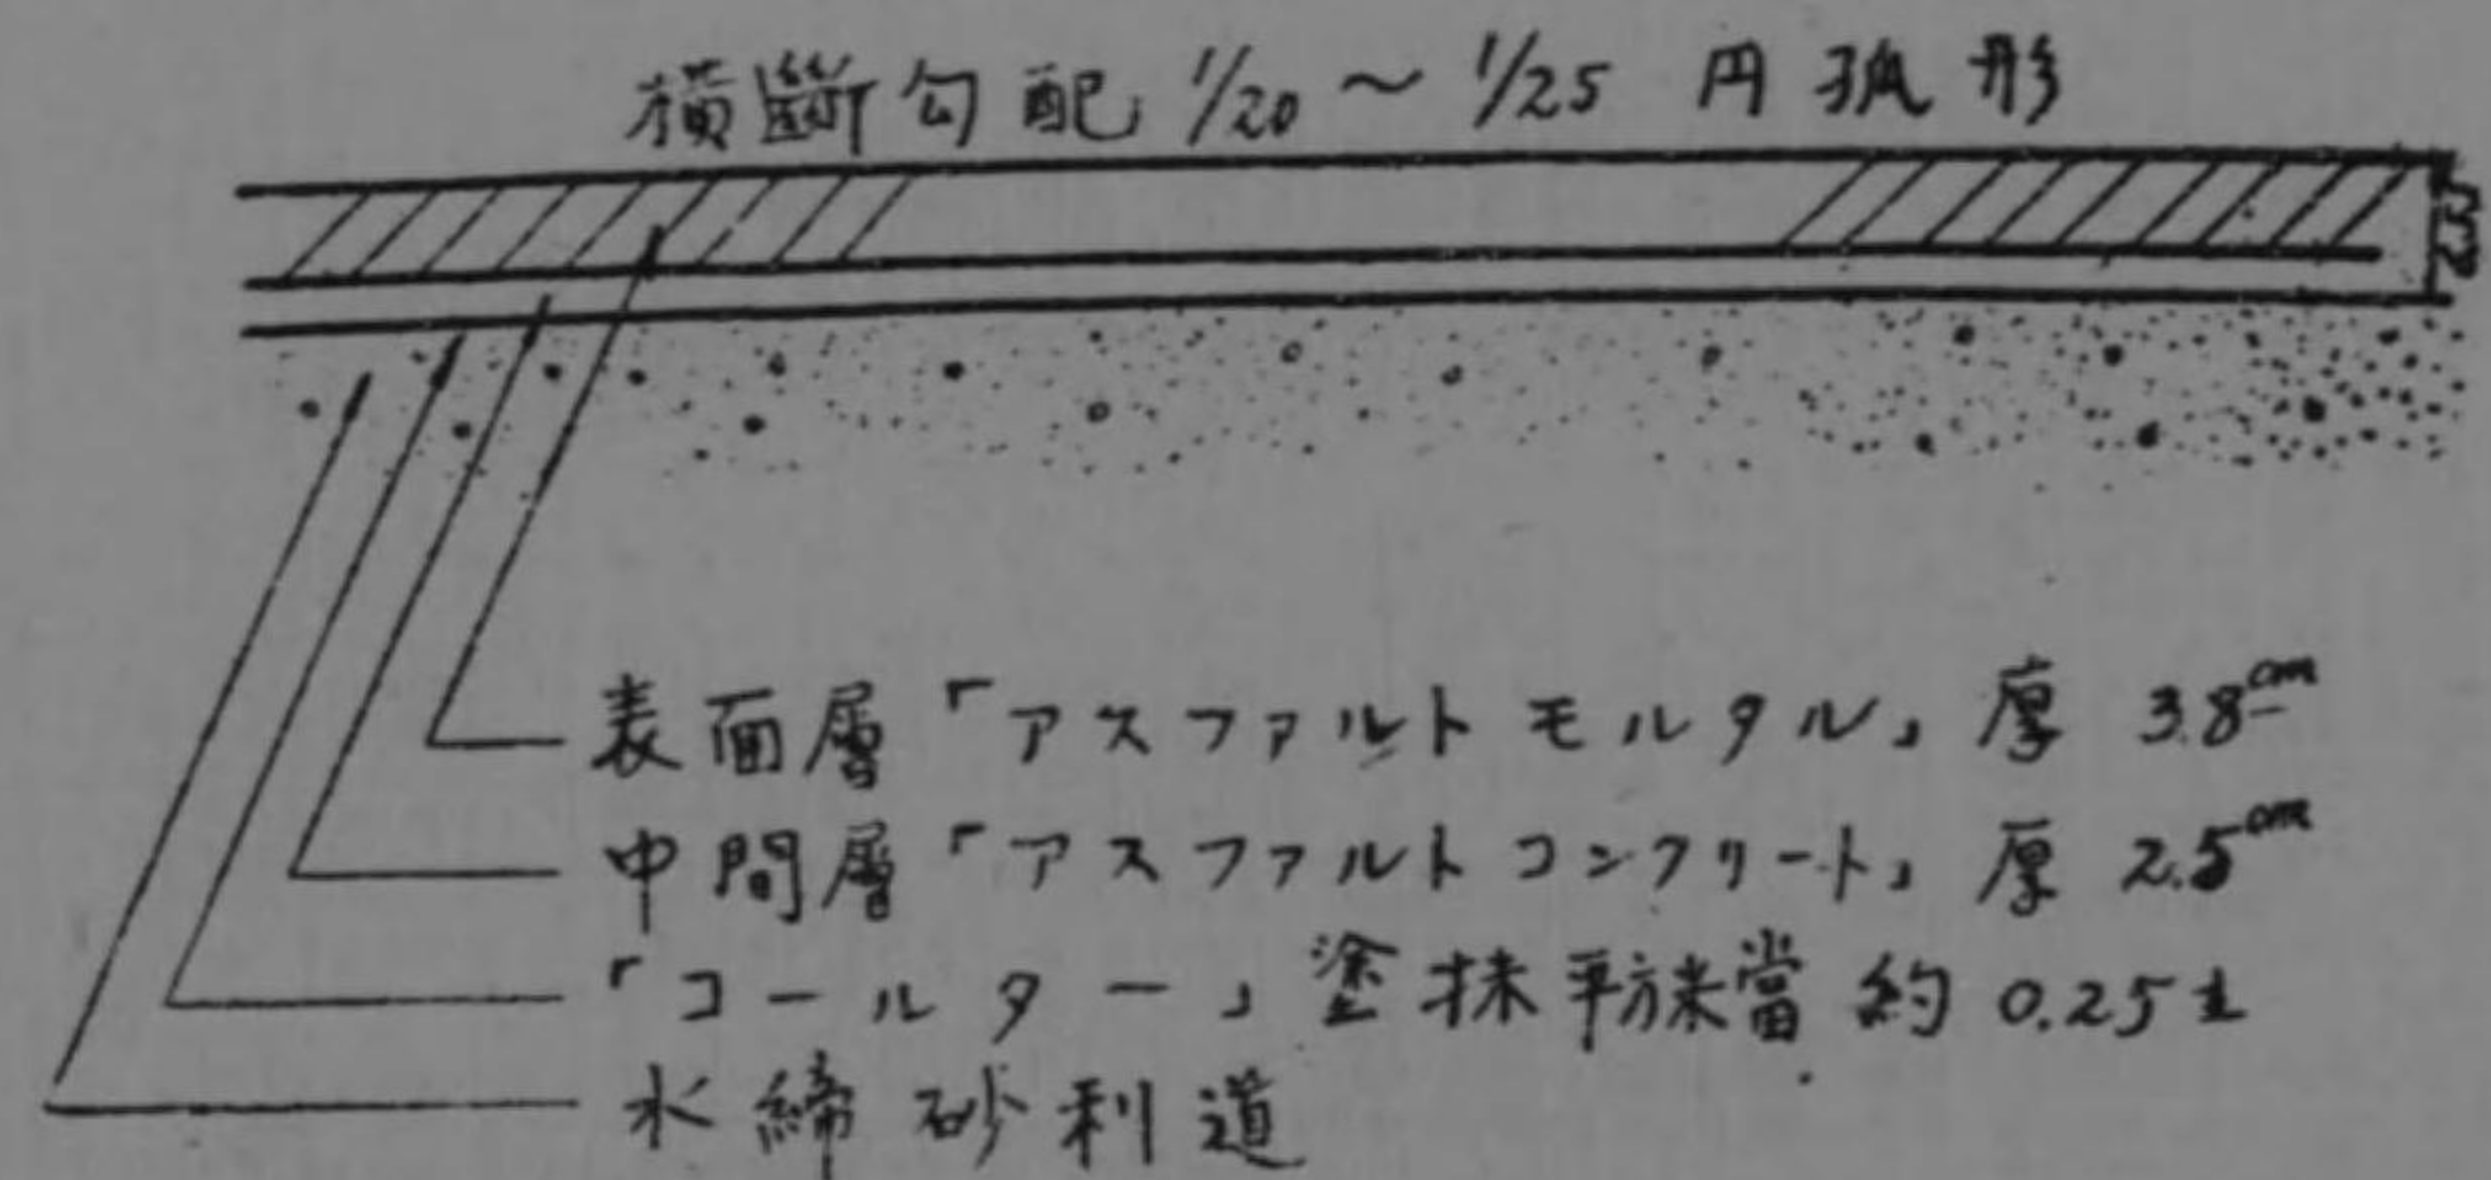 横斷勾配 1/20 ~ 1/25 円弧形
表面層「アスファルトモルタル」厚 3.8cm
中間層「アスファルトコンクリート」厚 2.5cm
「コールター」塗抹平方米當約 0.25
水締砂利道